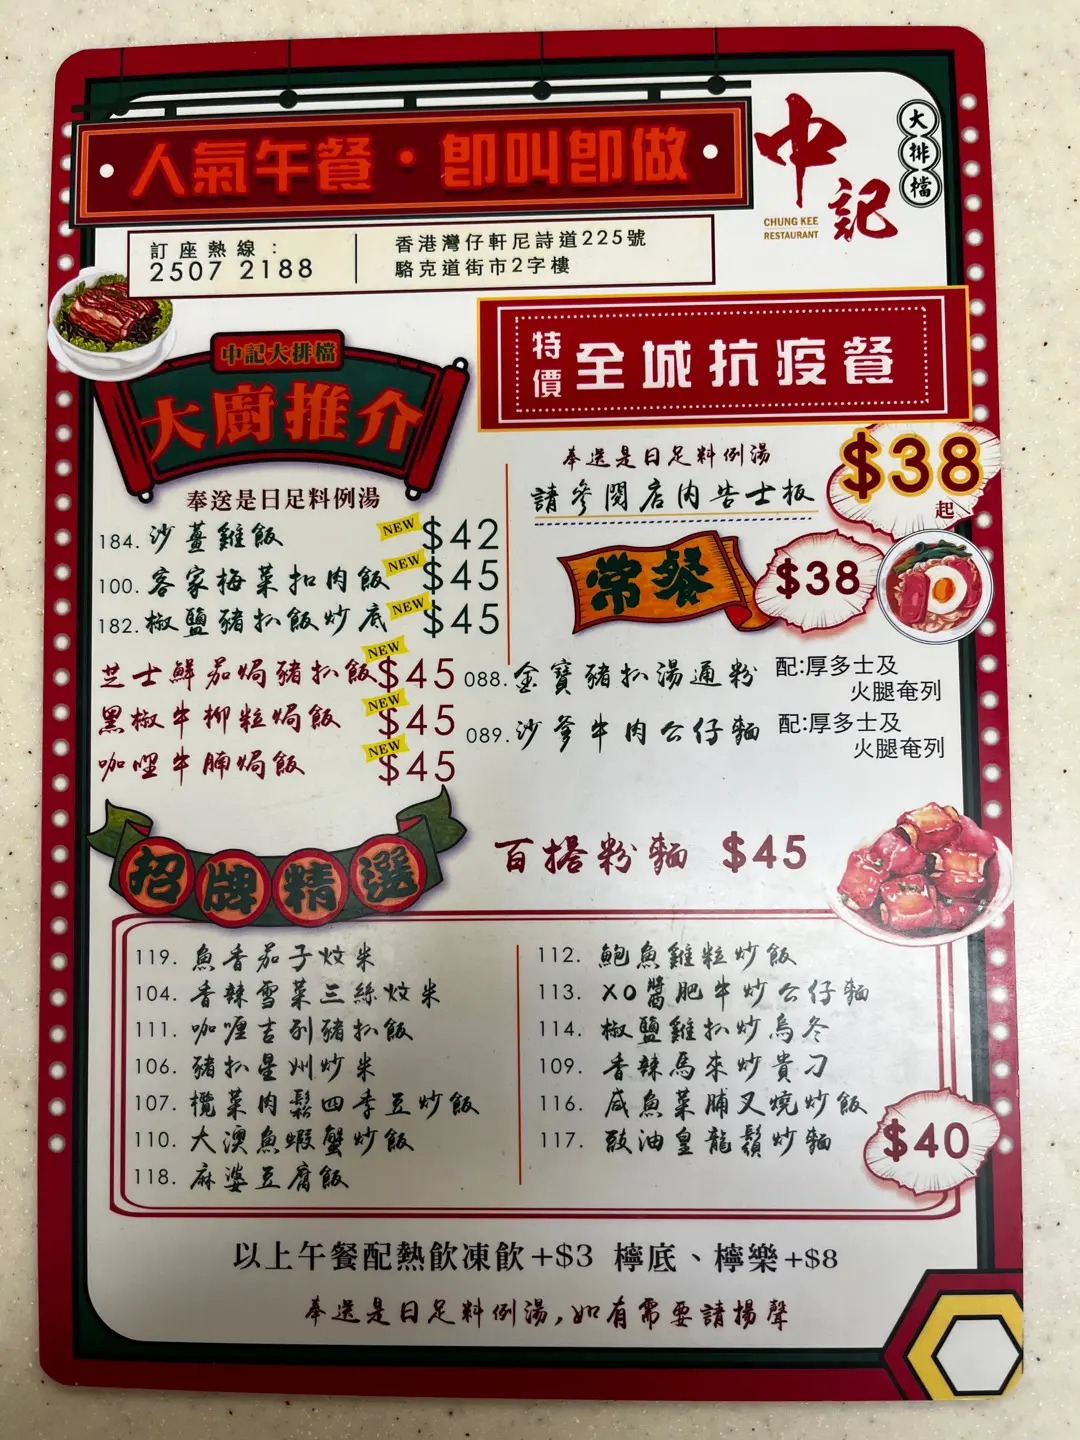 人氣午餐・即叫即做
中記
大排檔
CHUNG KEE
RESTAURANT
訂座熱線：
2507 2188
香港灣仔軒尼詩道225號
駱克道街市2字樓
中記大排檔
大廚推介
奉送是日足料例湯
184. 沙薑雞飯 NEW $42
100. 客家梅菜扣肉飯 NEW $45
182. 椒鹽豬扒飯炒底 NEW $45
芝士鮮茄焗豬扒飯 NEW $45
黑椒牛柳粒焗飯 NEW $45
咖喱牛腩焗飯 NEW $45
特價 全城抗疫餐
奉送是日足料例湯
請參閱店內告士板
$38起
常餐 $38
088. 金寶豬扒湯通粉 配:厚多士及
火腿奄列
089. 沙爹牛肉公仔麵 配:厚多士及
火腿奄列
百搭粉麵 $45
招牌精選
119. 魚香茄子炆米
104. 香辣雪菜三絲炆米
111. 咖喱吉列豬扒飯
106. 豬扒星州炒米
107. 欖菜肉鬆四季豆炒飯
110. 大澳魚蝦蟹炒飯
118. 麻婆豆腐飯
112. 鮑魚雞粒炒飯
113. XO醬肥牛炒公仔麵
114. 椒鹽雞扒炒烏冬
109. 香辣馬來炒貴刁
116. 咸魚菜脯叉燒炒飯
117. 豉油皇龍鬚炒麵
$40
以上午餐配熱飲凍飲+$3 檸底、檸樂+$8
奉送是日足料例湯,如有需要請揚聲